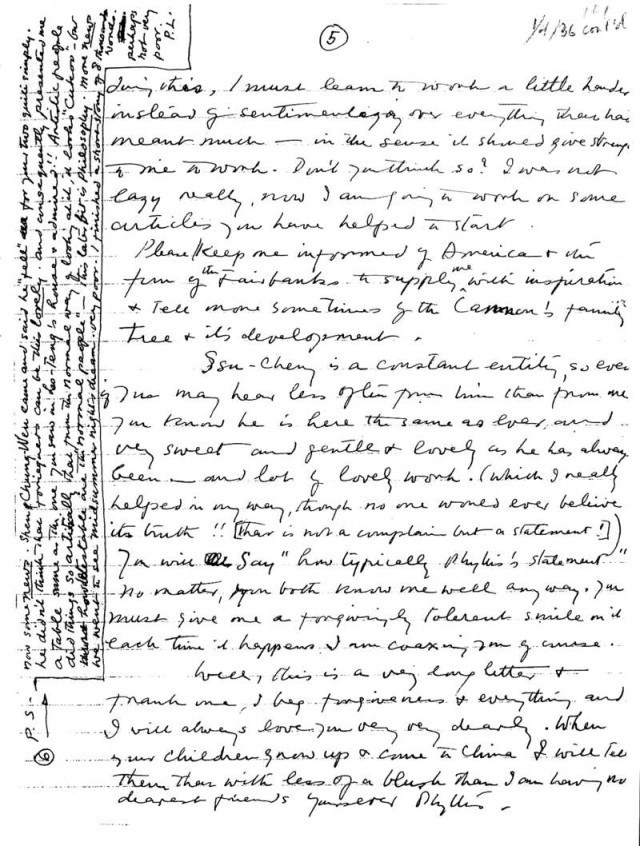 5
1/4/36 cont'd
doing this, I must learn to work a little harder
instead of sentimentalizing over everything that has
meant much — in the sense it should give strength
to me to work. Don't you think so? I was not
lazy really, now I am going to work on some
articles you have helped to start.
Please keep me informed of America & the
firm of the Fairbanks to supply me with inspiration
& tell more sometimes of the Cannon's family
tree & it's development.
Ssu-Cheng is a constant entity, so even
if you may hear less often from him than from me
you know he is here the same as ever, and
very sweet and gentle & lovely as he has always
been — and lot of lovely work. (which I really
helped in my way, though no one would ever believe
its truth !! [that is not a complain but a statement!])
You will say "how typically Phyllis's statement"
no matter, you both know me well anyway. You
must give me a forgivingly tolerent smile on it
each time it happens. I am coaxing you of course.
Well, this is a very long letter &
frank one, I beg forgiveness & everything and
I will always love you very very dearly. When
your children grow up & come to China I will tell
them that with less of a blush than I am having no
dearest friends yours ever Phyllis.
6
P.S.
now some news. Shen Chung-Wen came and said he "fell" for you two quite simply.
he didn't think that foreigners can be this lovely, and consequently presented me
a table same as the one you saw in ho-teng's house & admired!! Artistic people
did things so artistically that from the normal way of look at it, it looks "Cuckoo" but
how detestible are the normal people" — this later bit is philosophy. more news
we went to see midsummer night's dream. very poor. I finished a short story of 8 thousand
words.
perhaps
not very
poor.
P.L.